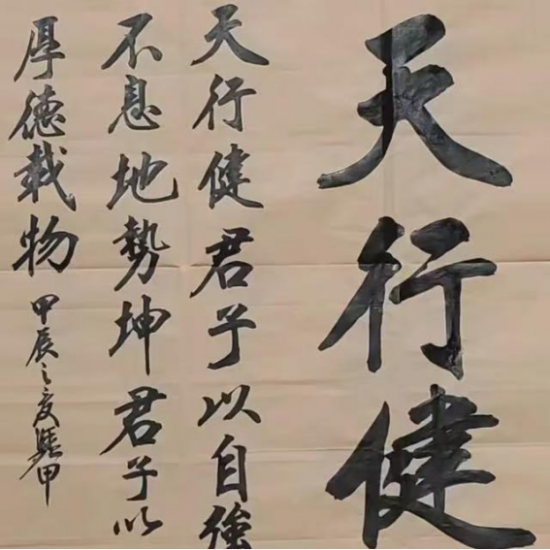 天行健
天行健君子以自強
不息地勢坤君子以
厚德載物
甲辰之夏